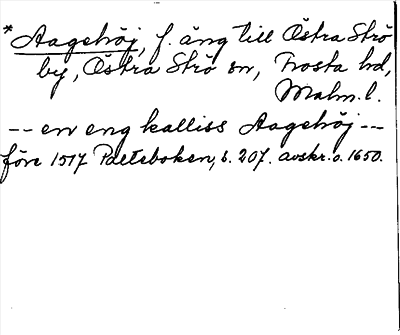 *Aagehöj, f. äng till Östra Strö
by, Östra Strö sn, Frosta hd,
Malm. l.
-- en eng kalliss Aagehöj --
före 1517 Palteboken, s. 207. avskr. o. 1650.